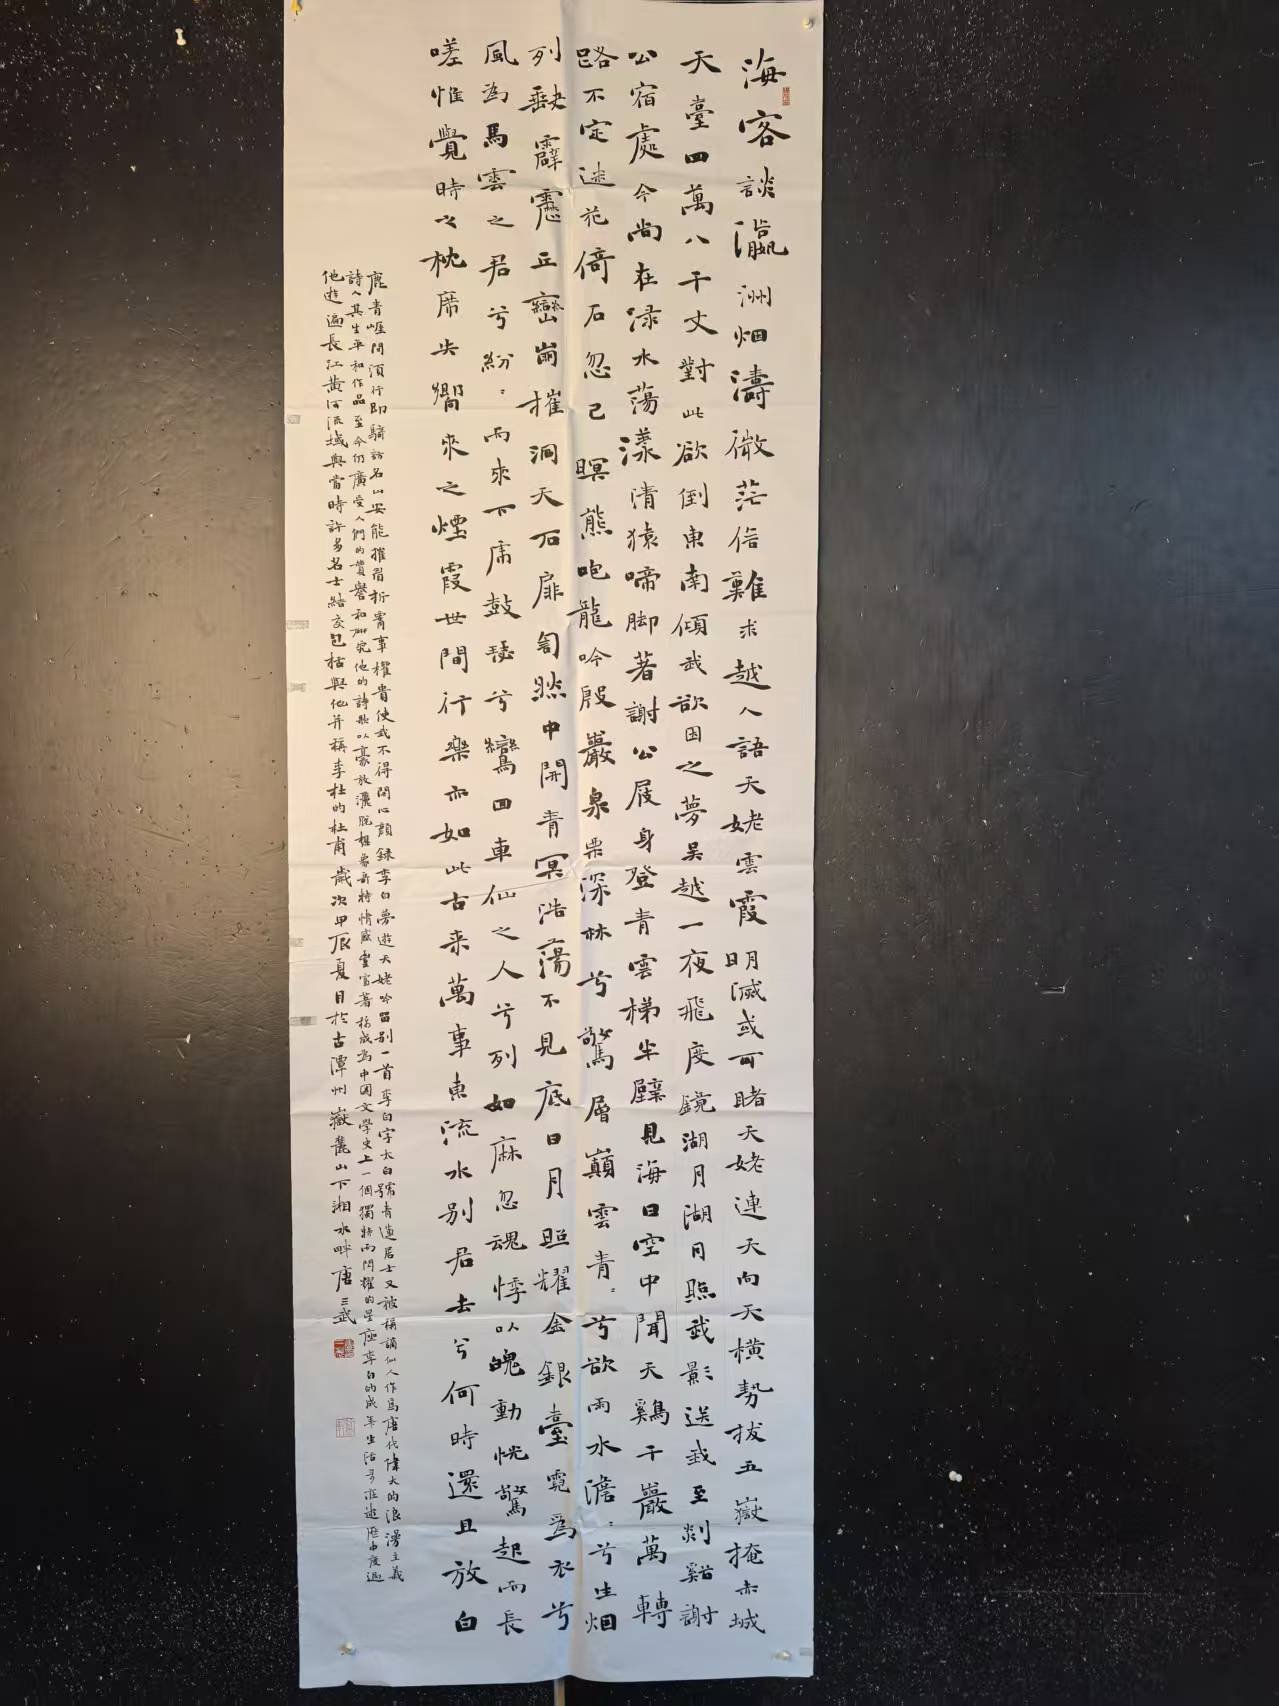 海客談瀛洲烟濤微茫信難求越人語天姥雲霞明滅或可睹天姥連天向天橫勢拔五嶽掩赤城
天臺四萬八千丈對此欲倒東南傾我欲因之夢吳越一夜飛度鏡湖月湖月照我影送我至剡谿謝
公宿處今尚在淥水蕩漾清猿啼脚著謝公屐身登青雲梯半壁見海日空中聞天鷄千巖萬轉
路不定迷花倚石忽已暝熊咆龍吟殷巖泉栗深林兮驚層巔雲青〻兮欲雨水澹〻兮生烟
列缺霹靂丘巒崩摧洞天石扉訇然中開青冥浩蕩不見底日月照耀金銀臺霓爲衣兮
風為馬雲之君兮紛〻而來下虎鼓瑟兮鸞回車仙之人兮列如麻忽魂悸以魄動恍驚起而長
嗟惟覺時之枕席失嚮來之煙霞世間行樂亦如此古来萬事東流水別君去兮何時還且放白
鹿青崖間須行即騎訪名山安能摧眉折腰事權貴使我不得開心顔録李白夢遊天姥吟留别一首李白字太白號青蓮居士又被稱謫仙人作爲唐代偉大的浪漫主義
詩人其生平和作品至今仍廣受人們的贊譽和研究他的詩歌以豪放灑脱想象奇特情感豐富著稱成爲中国文學史上一個獨特而閃耀的星座李白的成年生活
他遊遍長江黄河流域與當時許多名士結交包括與他并稱李杜的杜甫歲次甲辰夏月於古潭州嶽麓山下湘水畔唐三武